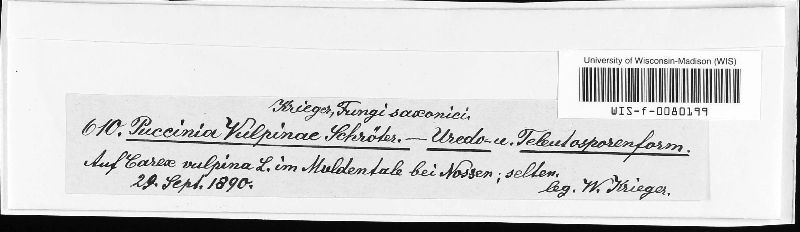 University of Wisconsin-Madison (WIS)
WIS-f-0080199
Krieger, Fungi saxonici.
610. Puccinia Vulpinae Schröter. — Uredo- u. Teleutosporenform.
Auf Carex vulpina L. im Muldentale bei Nossen; selten.
29. Sept. 1890. leg. W. Krieger.